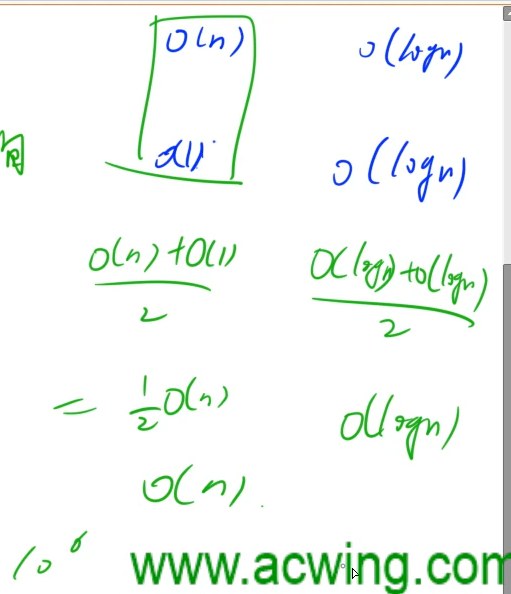 O(n) O(logn)
O(1) O(logn)
O(n)+O(1) O(logn)+O(logn)
2 2
= 1/2 O(n) O(logn)
O(n).
www.acwing.com